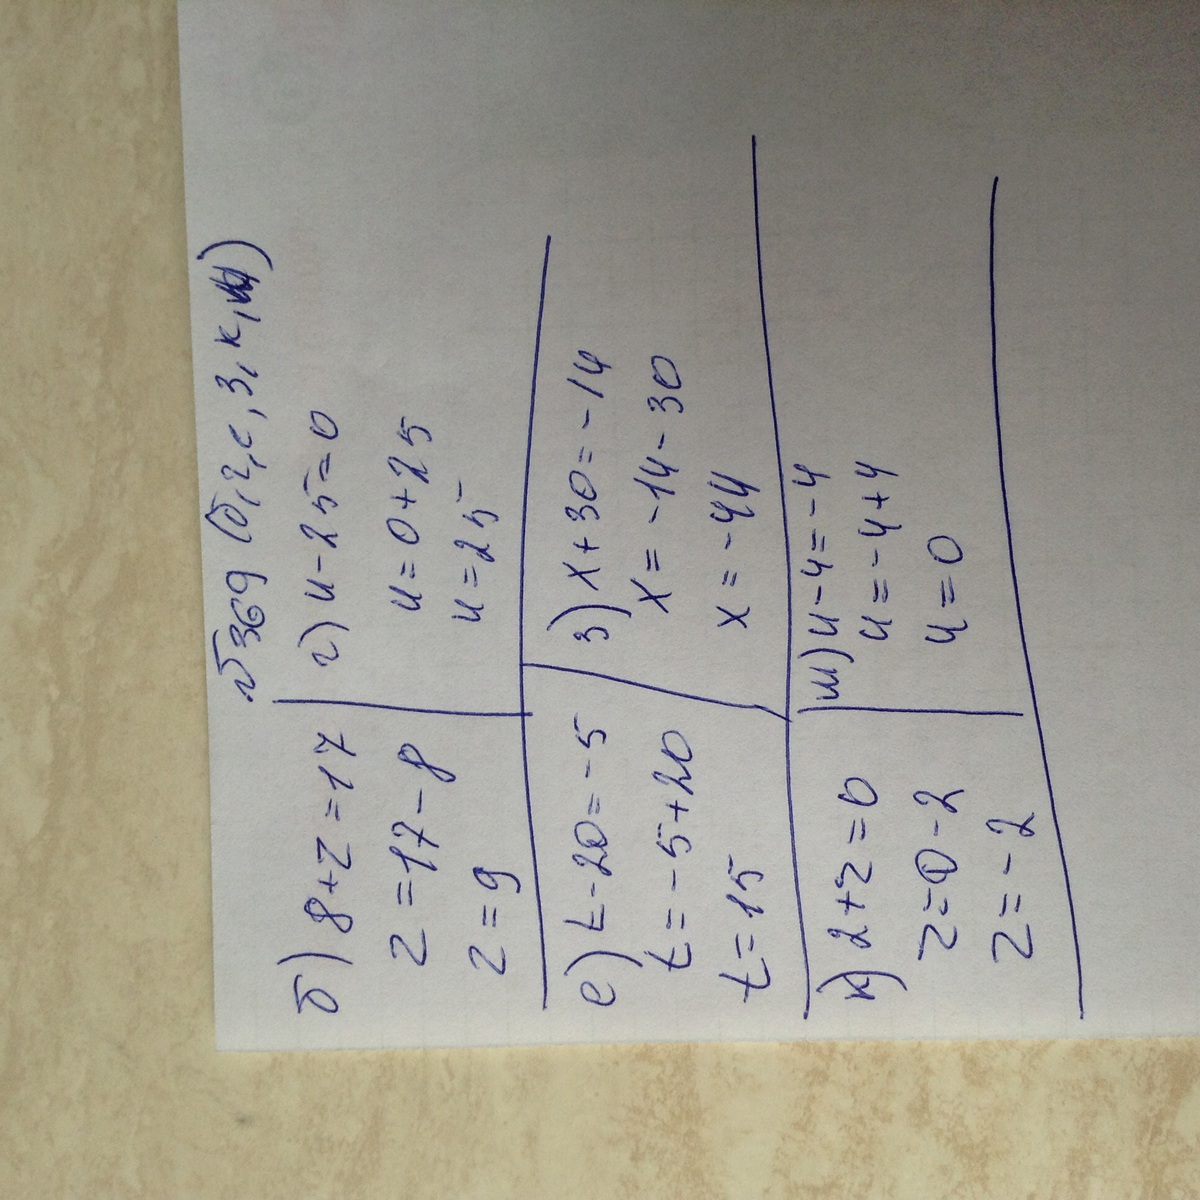 №369 (б, г, е, з, к, м)
б) 8+z=17
z=17-8
z=9
г) u-25=0
u=0+25
u=25
е) t-20=-5
t=-5+20
t=15
з) x+30=-14
x=-14-30
x=-44
к) 2+z=0
z=0-2
z=-2
м) u-4=-4
u=-4+4
u=0